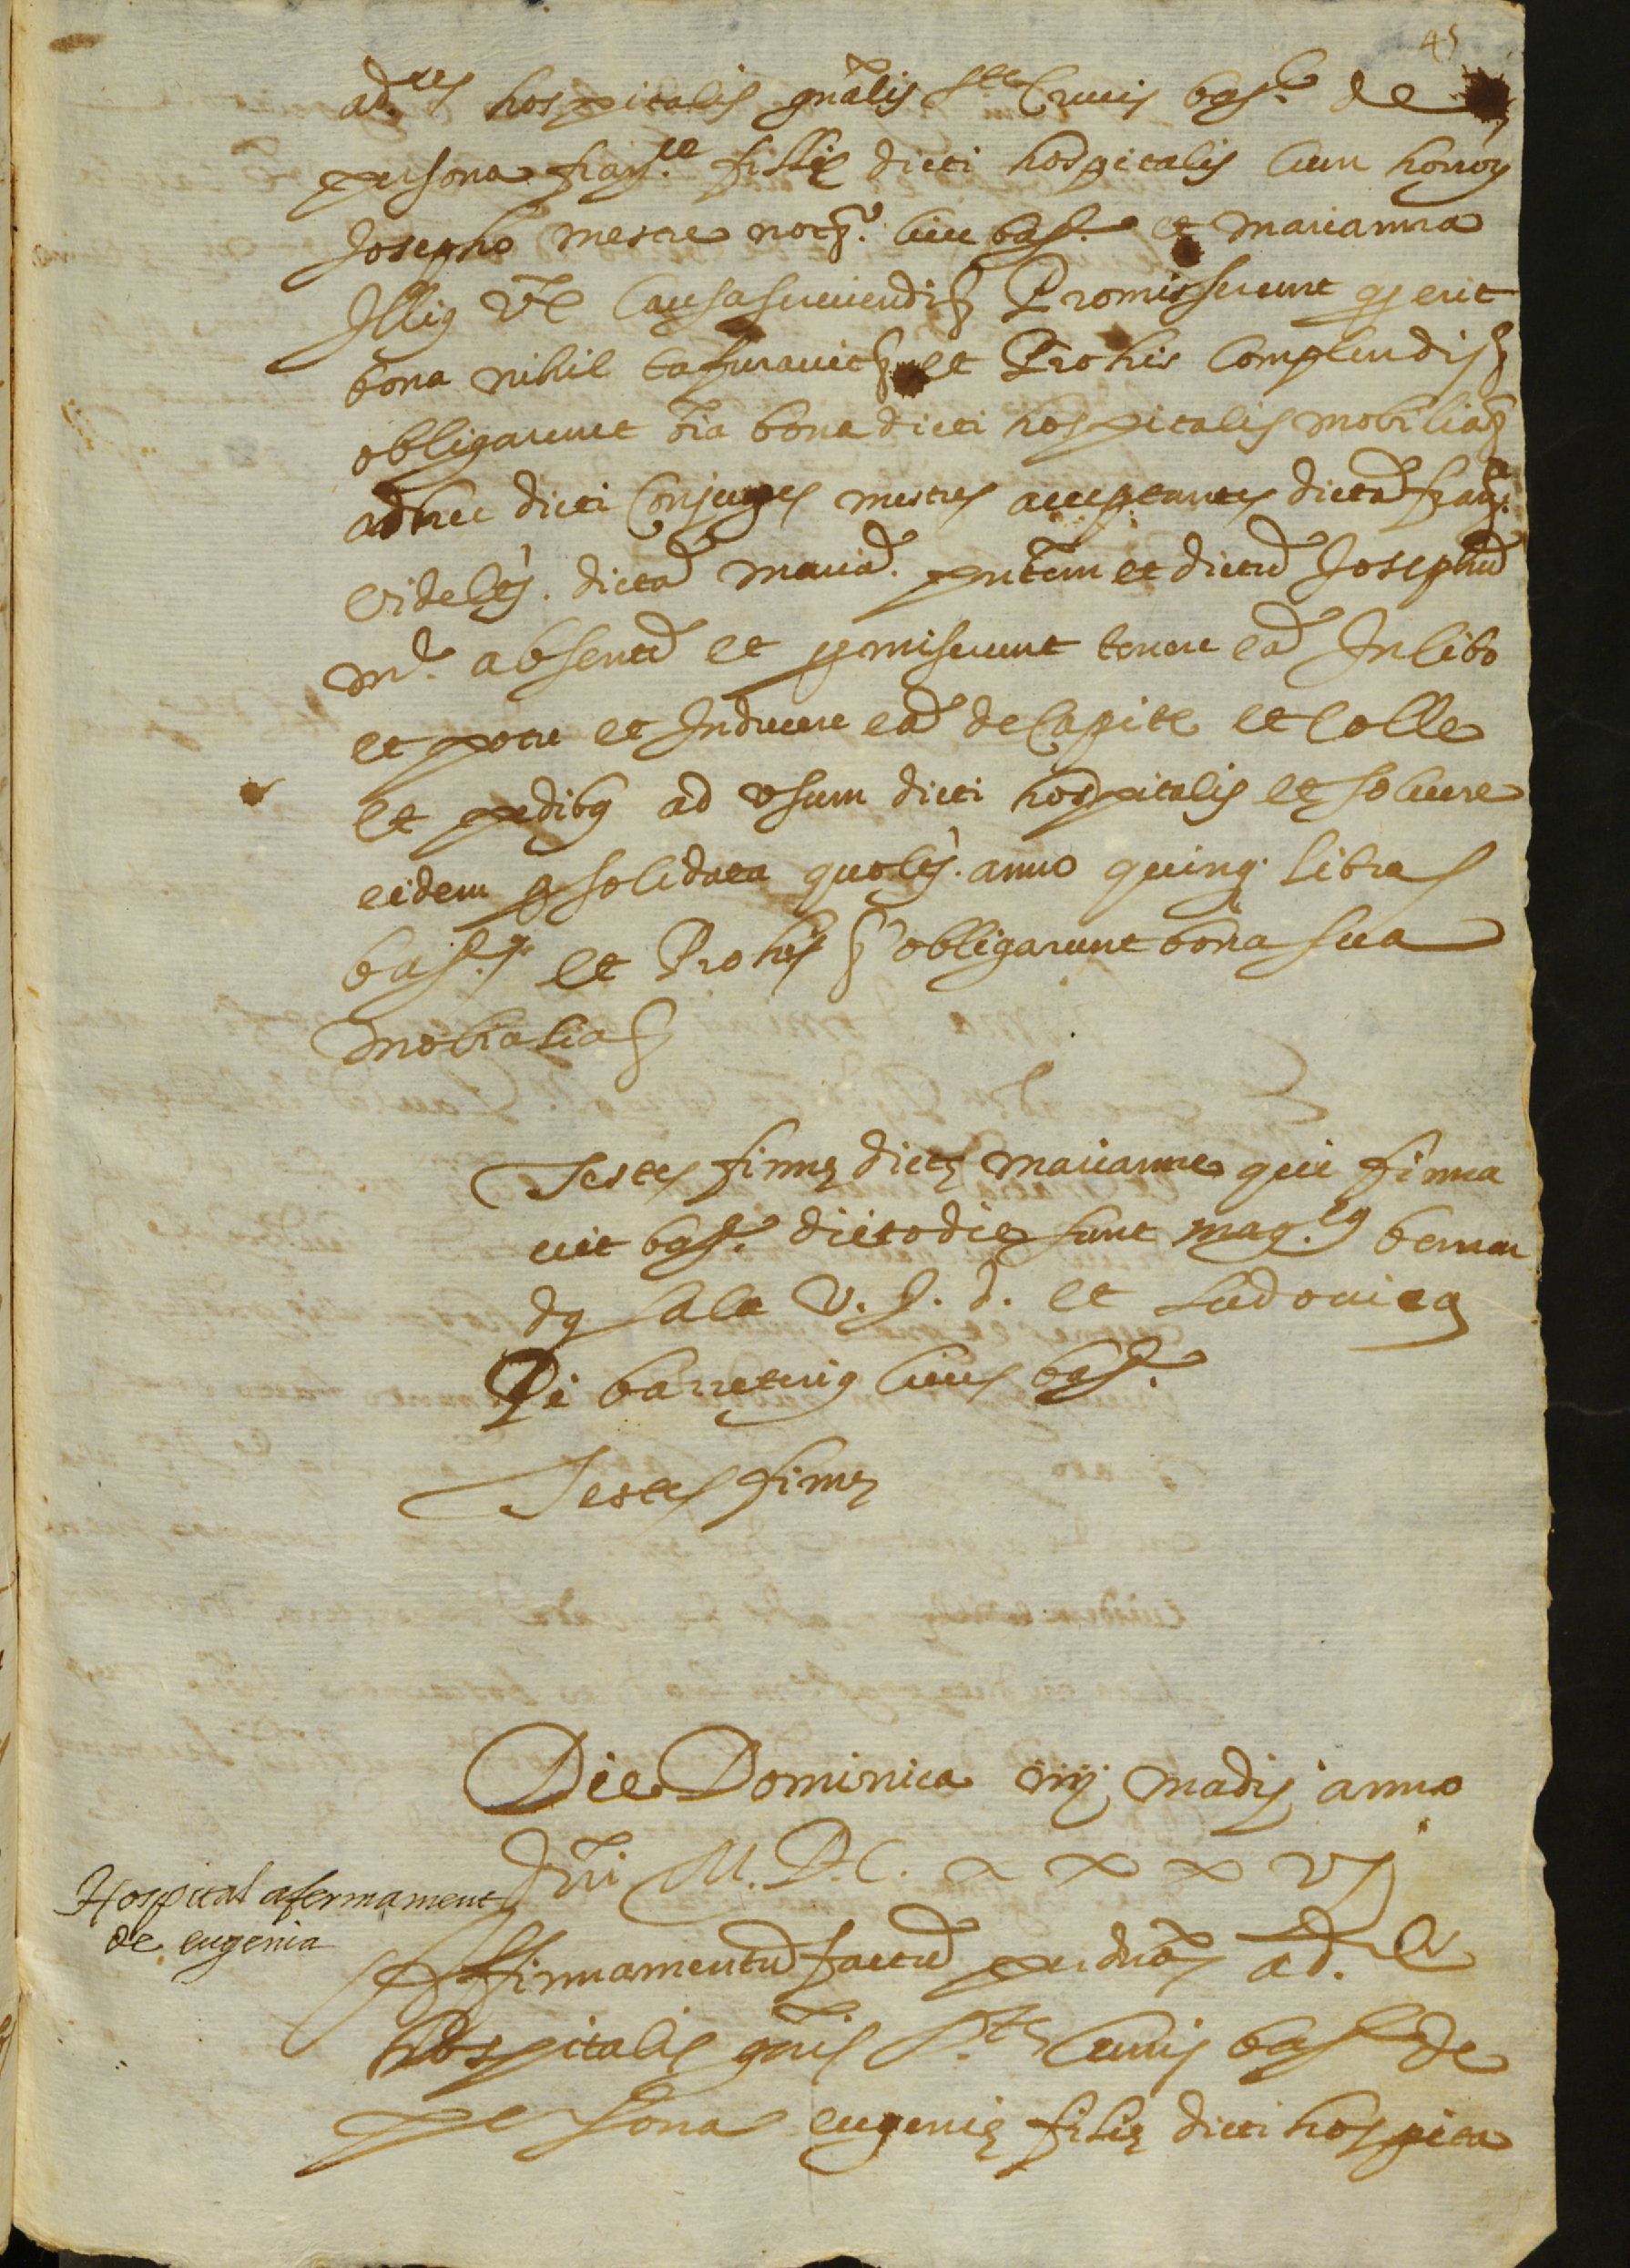 45
ad.res hospitalis gñalis Ste Crucis bar.e de
persona fran.ce filie dicti hospitalis cum honor
Josepho mestre not. cive bar.e et marianna
Illius ux causa serviendi Promisserunt q erit
bona nihil et Pro his complendis
obligarunt oia bona dicti hospitalis mobilia
ad hec dicti conjuges mestres acceptantes dictã fran.
videlt. dictã mariã. pntem et dictũ Josephũ
absentẽ et pmiserunt tenere eã In cibo
et potu et Inducere eã de capite et colle
et pedibus ad usum dicti hospitalis et solvere
eidem p solidata quolt. anno quinq. libras
bar. et Pro his obligarunt bona sua
mobialia
Testes firme dicte marianne qui firma
vit bar. dicto die sunt mag.cus bernar
dus sala V. J. d. et Ludovicus
barretinus cives bar.
Testes firme
Die Dominica iiij madij anno
Dñi M. D. C. x x x vj
Hospital afermament
de eugenia
Affirmamentũ factũ per dnos ad.es
Hospitalis gñis S.te Crucis bar de
persona eugenie filie dicti hospita